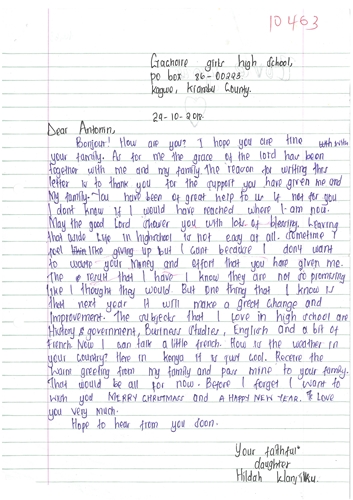 10463
Gachoire girls high school,
po box 86-00223
kagwe, kiambu County.
29-10-2018
Dear Antonin,
Bonjour! How are you? I hope you are fine with with
your family. As for me the grace of the lord has been
together with me and my family. The reason for writing this
letter is to thank you for the support you have given me and
My family. You have been of great help to us if not for you
I dont know if I would have reached where I am now.
May the good Lord shower you with lots of blessing. Leaving
that aside life in highschool is not easy at all. Sometime I
feel like giving up but I cant because I dont want
to waste your money and effort that you have given me.
The result that I have I know they are not so promising
like I thought they would But one thing that I know is
that next year it will make a great change and
improvement. The subjects that I love in high school are
History & government, Business studies, English and a bit of
french Now I can talk a little french. How is the weather in
your country? Here in kenya it is just cool. Receive the
warm greeting from my family and pass mine to your family.
That would be all for now. Before I forget I want to
wish you MERRY CHRISTMASS and A HAPPY NEW YEAR. I LOVE
you very much.
Hope to hear from you soon.
Your faithful
daughter
Hildah